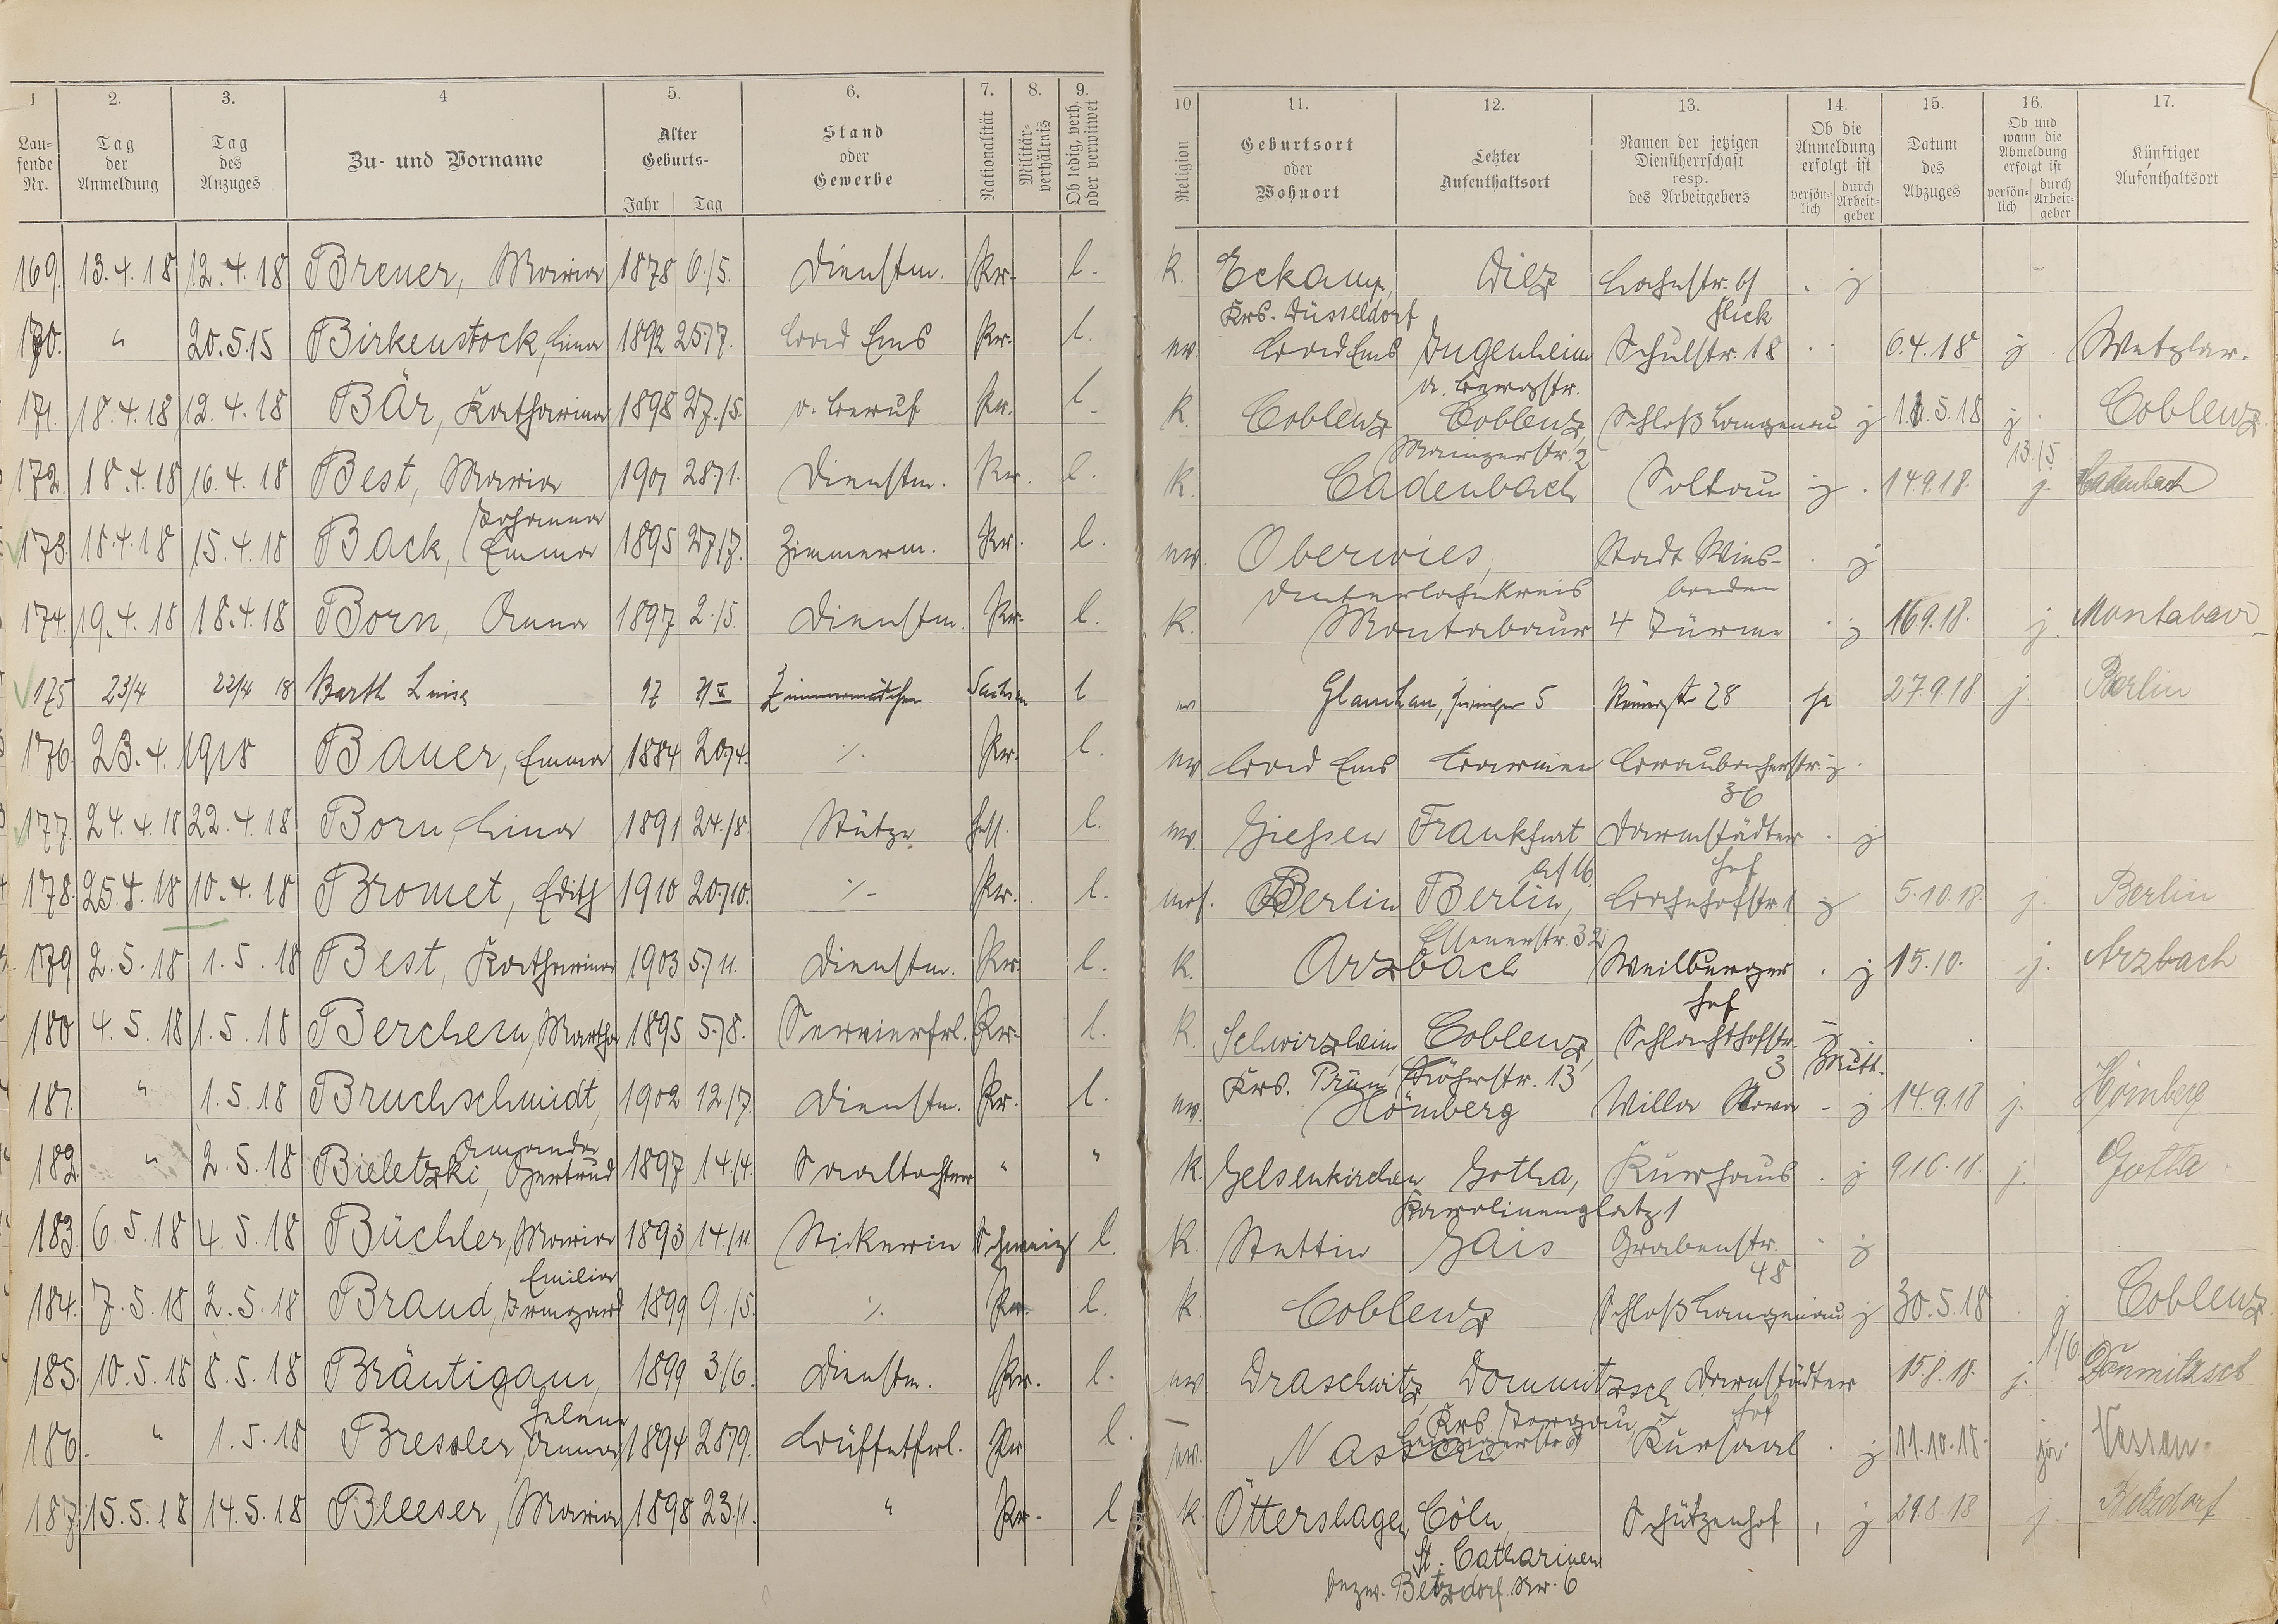 1 2. 3. 4 5. 6. 7. 8. 9. 10. 11. 12. 13. 14. 15. 16. 17.
Lau-fende Nr. Tag der Anmeldung Tag des Anzuges Zu- und Vorname Alter Geburts- Jahr Tag Stand oder Gewerbe Nationalität Militär-verhältnis Ob ledig, verh. oder verwitwet Religion Geburtsort oder Wohnort Letzter Aufenthaltsort Namen der jetzigen Dienstherrschaft resp. des Arbeitgebers Ob die Anmeldung erfolgt ist persön-lich durch Arbeit-geber Datum des Abzuges Ob und wann die Abmeldung erfolgt ist persön-lich durch Arbeit-geber Künftiger Aufenthaltsort
169. 13.4.18 12.4.18 Breuer, Maria 1878 6./5. Dienstm. Pr. l. K. Eckamp, Krs. Düsseldorf Diez Lahnstr. 61 j
170. " 20.5.15 Birkenstock, Lina 1892 25./7. Bad Ems Pr. l. ev. Bad Ems Jugenheim a. Bergstr. Flick Schulstr. 18 6.4.18 j Wetzlar.
171. 18.4.18 12.4.18 Bär, Katharina 1898 27./5. o. Beruf Pr. l. K. Coblenz Coblenz, Mainzerstr. 2 Schloß Langenau j 5.18 j Coblenz
172. 18.4.18 16.4.18 Best, Maria 1901 28./1. Dienstm. Pr. l. K. Cadenbach Soltau j 14.9.18. 13./5. j. Cadenbach
173. 18.4.18 15.4.18 Back, Johanna Emma 1895 27./7. Zimmerm. Pr. l. ev. Oberwies, Unterlahnkreis Stadt Wies-baden j
174. 19.4.18 18.4.18 Born, Anna 1897 2./5. Dienstm. Pr. l. K. Montabaur 4 Türme j 16.9.18. j. Montabaur
175 23/4 22/4 18 Barth Luise 97 Zimmermädchen Sachsen l ev Glauchau, 5 Römerstr 28 ja 27.9.18. j. Berlin
176. 23.4.1918 Bauer, Emma 1884 20./4. ./. Pr. l. ev. Bad Ems Barmen Braubacherstr. 36 j
177. 24.4.18 22.4.18 Born, Lina 1891 24./8. Stütze Hess. l. ev. Giessen Frankfurt a/ 16. Darmstädter Hof j
178. 25.4.18 10.4.18 Bromet, Edith 1910 20./10. ./. Pr. l. mos. Berlin Berlin, Elsenerstr. 32 Bahnhofstr. 1 j 5.10.18. j. Berlin
179 2.5.18 1.5.18 Best, Katharina 1903 5./11. Dienstm. Pr. l. K. Arzbach Weilburger Hof j 15.10. j. Arzbach
180 4.5.18 1.5.18 Berchem, Martha 1895 5./8. Servierfrl. Pr. l. K. Schwirzheim Krs. Prüm Coblenz, Löhrstr. 13 Schlachthofstr. 3 Mitt.
181. " 1.5.18 Bruchschmidt, 1902 12./7. Dienstm. Pr. l. ev. Hömberg Villa j 14.9.18 j. Hömberg
182 " 2.5.18 Bieletzki, Amanda Gertrud 1897 14./4. Saaltochter " " K. Gelsenkirchen Gotha, Karolinenplatz 1 Kurhaus j 9.10.18. j. Gotha
183. 6.5.18 4.5.18 Büchler, Maria 1893 14./11. Stickerin Schweiz l. K. Stettin Gais Grabenstr. 48 j
184. 7.5.18 2.5.18 Brand, Emilia Irmgard 1899 9./5. ./. Pr. l. K. Coblenz Schloß Langenau j 30.5.18 j 1/6. Coblenz
185. 10.5.18 8.5.18 Bräutigam, Helene 1899 3./6. Dienstm. Pr. l. ev Draschwitz Dommitzsch, Krs. Torgau Leipzigerstr. Darmstädter Hof 15.8.18. j. Dommitzsch
186. " 1.5.18 Bressler, Anna 1894 28./9. Büffetfrl. Pr l. ev. Nassau Kursaal j 11.10.18. ja Nassau.
187. 15.5.18 14.5.18 Bleeser, Maria 1898 23./1. " Pr. l K. Öttershagen Cöln, St. Catharinen Schützenhof j 29.8.18 j. Betzdorf
bezw. Betzdorf Nr. 6